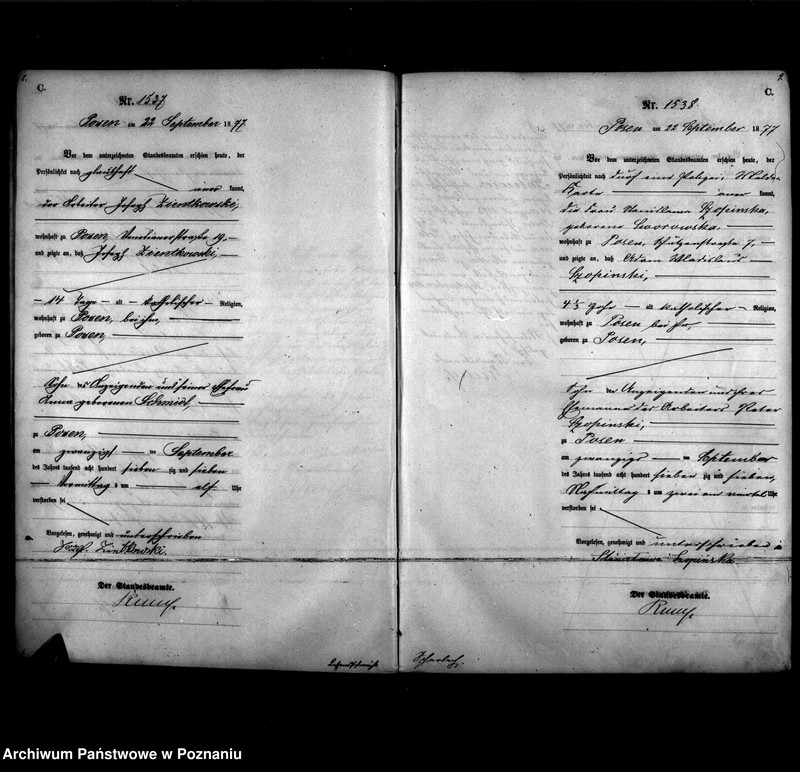 8.
C.
Nr. 1537
Posen am 22 September 1877
Vor dem unterzeichneten Standesbeamten erschien heute, der
Persönlichkeit nach glaubhaft
kannt,
der Arbeiter Joseph Zientkowski,
wohnhaft zu Posen, Venetianerstraße 19,
und zeigte an, daß Joseph Zientkowski,
14 Tage alt katholischer Religion,
wohnhaft zu Posen, bei ihm,
geboren zu Posen,
Sohn des Anzeigenden und seiner Ehefrau
Anna geborenen Schmidt,
zu Posen,
am zwanzigst en September
des Jahres tausend acht hundert sieben zig und sieben
Vormittag s um elf Uhr
verstorben sei
Vorgelesen, genehmigt und unterschrieben
Zientkowski
Der Standesbeamte.
9.
C.
Nr. 1538
Posen am 22 September 1877
Vor dem unterzeichneten Standesbeamten erschien heute, der
Persönlichkeit nach durch eine Polizei Melde
Karte kannt,
die Frau Stanislawa Szopinska,
geborene Sworowska,
wohnhaft zu Posen, Schützenstraße 7,
und zeigte an, daß Adam Wladislaus
Szopinski,
Jahr alt katholischer Religion,
wohnhaft zu Posen bei ihr,
geboren zu Posen,
Sohn der Anzeigenden und ihres
Ehemannes des Arbeiters Peter
Szopinski,
zu Posen
am zwanzigst en September
des Jahres tausend acht hundert sieben zig und sieben,
Nachmittag s um zwei ein viertel Uhr
verstorben sei
Vorgelesen, genehmigt und unterschrieben
Der Standesbeamte.
Archiwum Państwowe w Poznaniu